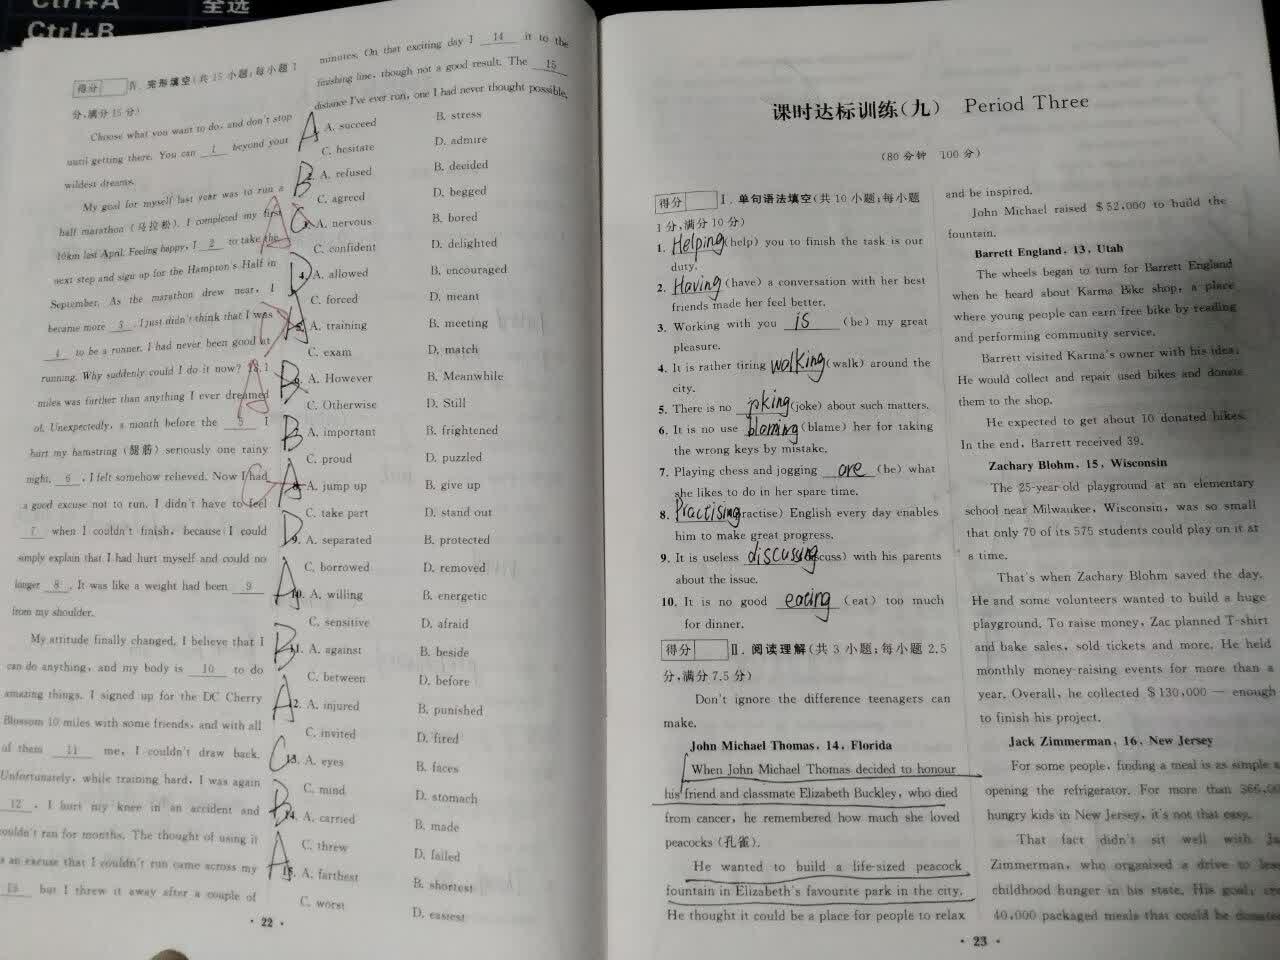 Ctrl+A 全选
Ctrl+B
得分 Ⅳ. 完形填空(共 15 小题;每小题 1
分,满分 15 分)
Choose what you want to do, and don't stop
until getting there. You can 1 beyond your
wildest dreams.
My goal for myself last year was to run a
half marathon (马拉松). I completed my first
10km last April. Feeling happy, I 2 to take the
next step and sign up for the Hampton's Half in
September. As the marathon drew near, I
became more 3. I just didn't think that I was
4 to be a runner. I had never been good at
running. Why suddenly could I do it now? 13.1
miles was further than anything I ever dreamed
of. Unexpectedly, a month before the 5 I
hurt my hamstring (腿筋) seriously one rainy
night. 6, I felt somehow relieved. Now I had
a good excuse not to run. I didn't have to feel
7 when I couldn't finish, because I could
simply explain that I had hurt myself and could no
longer 8. It was like a weight had been 9
from my shoulder.
My attitude finally changed. I believe that I
can do anything, and my body is 10 to do
amazing things. I signed up for the DC Cherry
Blossom 10 miles with some friends, and with all
of them 11 me, I couldn't draw back.
Unfortunately, while training hard, I was again
12. I hurt my knee in an accident and
couldn't run for months. The thought of using it
as an excuse that I couldn't run came across my
13 but I threw it away after a couple of
· 22 ·
minutes. On that exciting day I 14 it to the
finishing line, though not a good result. The 15
distance I've ever run, one I had never thought possible.
A A. succeed B. stress
C. hesitate D. admire
B 2. A. refused B. decided
C. agreed D. begged
A A. nervous B. bored
C. confident D. delighted
D 4. A. allowed B. encouraged
C. forced D. meant
A 5. A. training B. meeting
C. exam D. match
B A. However B. Meanwhile
A C. Otherwise D. Still
B A. important B. frightened
C. proud D. puzzled
C A 8. A. jump up B. give up
C. take part D. stand out
D 9. A. separated B. protected
C. borrowed D. removed
A 10. A. willing B. energetic
C. sensitive D. afraid
B 11. A. against B. beside
C. between D. before
A 12. A. injured B. punished
C. invited D. fired
C 13. A. eyes B. faces
C. mind D. stomach
B 14. A. carried B. made
C. threw D. failed
A 15. A. farthest B. shortest
C. worst D. easiest
课时达标训练(九) Period Three
(80 分钟 100 分)
得分 Ⅰ. 单句语法填空(共 10 小题;每小题
1 分,满分 10 分)
1. Helping (help) you to finish the task is our
duty.
2. Having (have) a conversation with her best
friends made her feel better.
3. Working with you is (be) my great
pleasure.
4. It is rather tiring walking (walk) around the
city.
5. There is no joking (joke) about such matters.
6. It is no use blaming (blame) her for taking
the wrong keys by mistake.
7. Playing chess and jogging are (be) what
she likes to do in her spare time.
8. Practising (practise) English every day enables
him to make great progress.
9. It is useless discussing (discuss) with his parents
about the issue.
10. It is no good eating (eat) too much
for dinner.
得分 Ⅱ. 阅读理解(共 3 小题;每小题 2.5
分,满分 7.5 分)
Don't ignore the difference teenagers can
make.
John Michael Thomas, 14, Florida
When John Michael Thomas decided to honour
his friend and classmate Elizabeth Buckley, who died
from cancer, he remembered how much she loved
peacocks (孔雀).
He wanted to build a life-sized peacock
fountain in Elizabeth's favourite park in the city.
He thought it could be a place for people to relax
and be inspired.
John Michael raised $52,000 to build the
fountain.
Barrett England, 13, Utah
The wheels began to turn for Barrett England
when he heard about Karma Bike shop, a place
where young people can earn free bike by reading
and performing community service.
Barrett visited Karma's owner with his idea.
He would collect and repair used bikes and donate
them to the shop.
He expected to get about 10 donated bikes.
In the end, Barrett received 39.
Zachary Blohm, 15, Wisconsin
The 25-year-old playground at an elementary
school near Milwaukee, Wisconsin, was so small
that only 70 of its 575 students could play on it at
a time.
That's when Zachary Blohm saved the day.
He and some volunteers wanted to build a huge
playground. To raise money, Zac planned T-shirt
and bake sales, sold tickets and more. He held
monthly money-raising events for more than a
year. Overall, he collected $130,000 — enough
to finish his project.
Jack Zimmerman, 16, New Jersey
For some people, finding a meal is as simple as
opening the refrigerator. For more than
hungry kids in New Jersey, it's not that easy.
That fact didn't sit well with
Zimmerman, who organised a drive to
childhood hunger in his state. His goal:
40,000 packaged meals that could be donated
· 23 ·